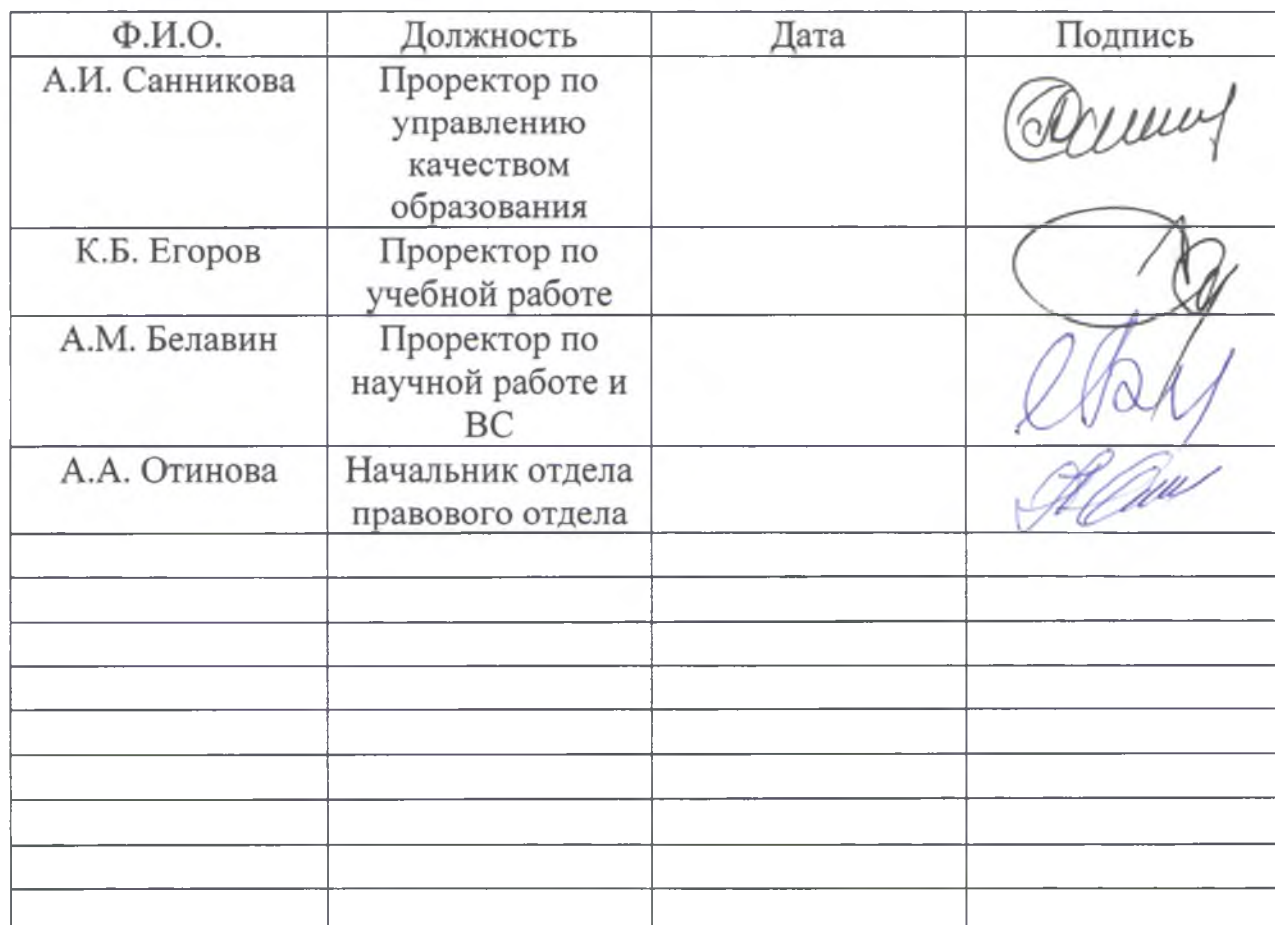 Ф.И.О. Должность Дата Подпись
А.И. Санникова Проректор по
управлению
качеством
образования
К.Б. Егоров Проректор по
учебной работе
А.М. Белавин Проректор по
научной работе и
ВС
А.А. Отинова Начальник отдела
правового отдела